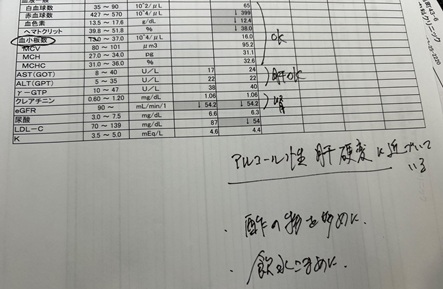 白血球数 35 ～ 90 10^2/μL 65
赤血球数 427 ～ 570 10^4/μL ↓ 399
血色素 13.5 ～ 17.6 g/dL ↓ 12.4
ヘマトクリット 39.8 ～ 51.8 % ↓ 38.0
血小板数 ～ 37.0 10^4/μL 16.0 ok
MCV 80 ～ 101 μm3 95.2
MCH 27.0 ～ 34.0 pg 31.1
MCHC 31.0 ～ 36.0 % 32.6
AST(GOT) 8 ～ 40 U/L 17 24
ALT(GPT) 5 ～ 35 U/L 22 22 肝OK
γ－GTP 10 ～ 47 U/L 38 40
クレアチニン 0.60 ～ 1.20 mg/dL 1.06 1.06 腎
eGFR 90 ～ mL/min/1 ↓ 54.2 ↓ 54.2
尿酸 3.0 ～ 7.5 mg/dL 6.6 6.3
LDL-C 70 ～ 139 mg/dL 87 ↓ 54
K 3.5 ～ 5.0 mEq/L 4.6 4.4
アルコール性 肝硬変に近づいて
いる
・酢の物を多めに.
・飲水こまめに.